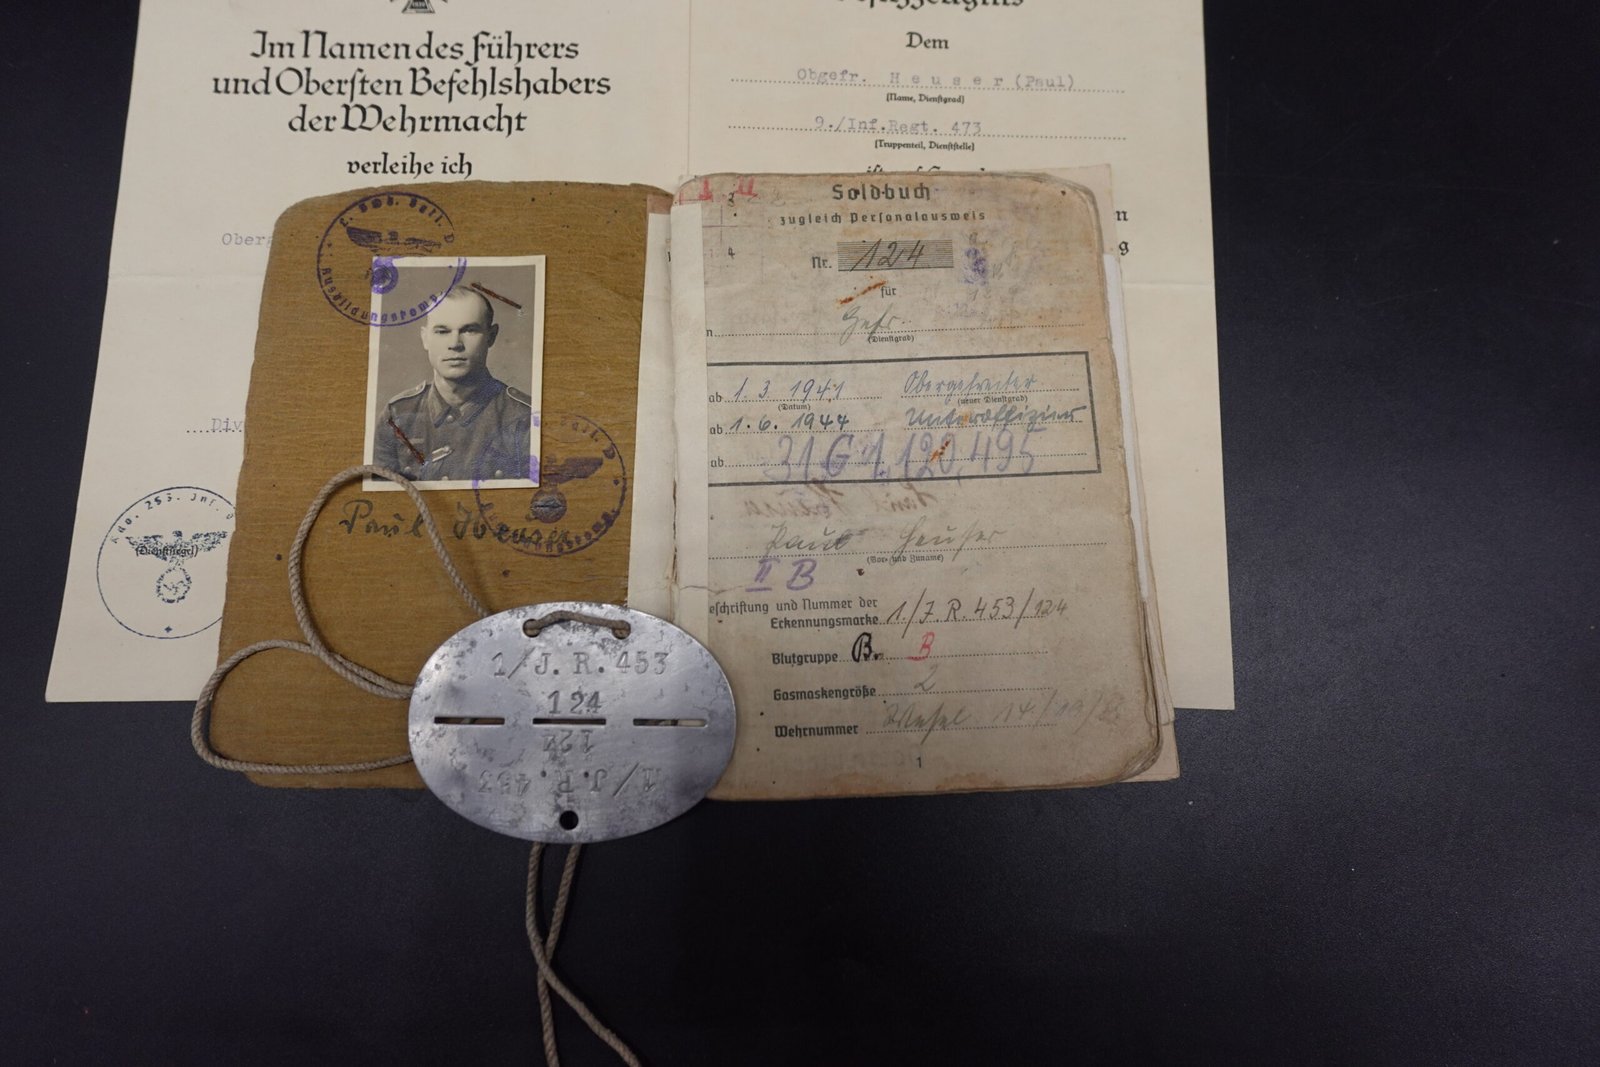 Im Namen des Führers
und Obersten Befehlshabers
der Wehrmacht
verleihe ich
(Dienstsiegel)
Dem
Obgefr. Heuser (Paul)
(Name, Dienstgrad)
9./Inf.Regt. 473
(Truppenteil, Dienststelle)
Ausbildungskomp.
Paul Heuser
Soldbuch
zugleich Personalausweis
Nr. 124
für
Gefr.
(Dienstgrad)
ab 1.3 1941 Obergefreiter
(Datum) (neuer Dienstgrad)
ab 1.6. 1944 Unteroffizier
ab 31 G 1,120,495
Paul Heuser
(Vor- und Zuname)
II B
eschriftung und Nummer der
Erkennungsmarke 1./J.R.453/124
Blutgruppe B. B
Gasmaskengröße 2
Wehrnummer Wesel
1
1/J.R.453
124
124
1/J.R.453